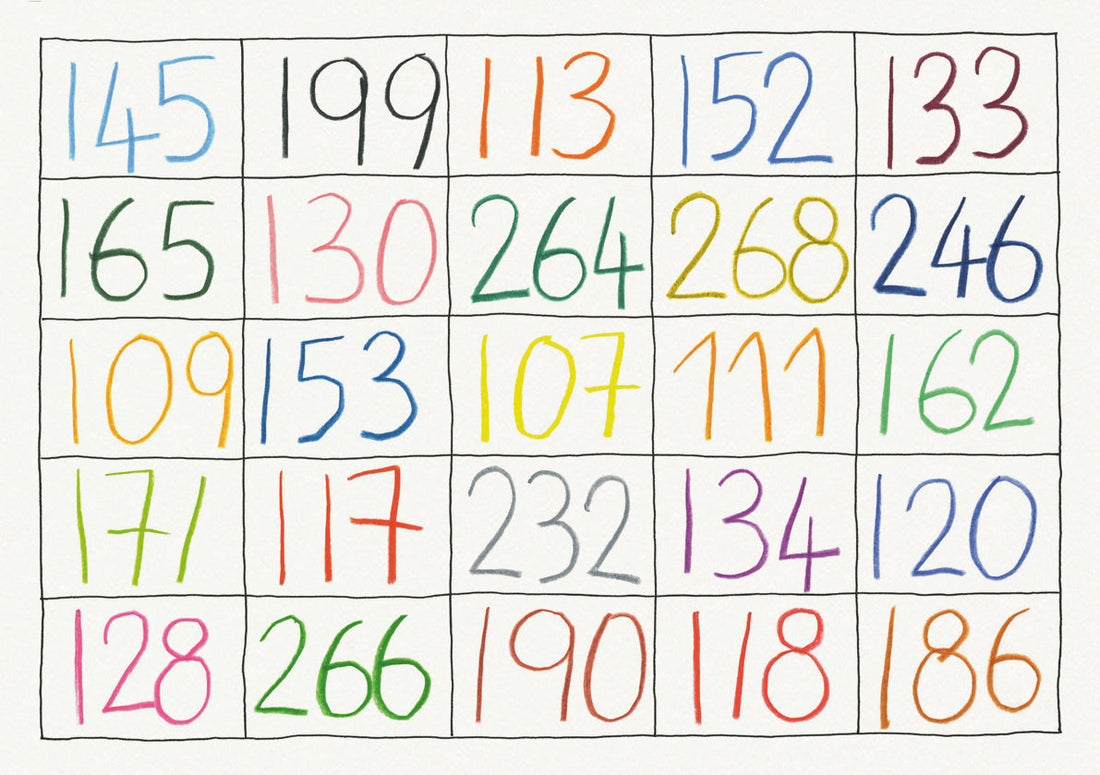 145 199 113 152 133
165 130 264 268 246
109 153 107 111 162
171 117 232 134 120
128 266 190 118 186